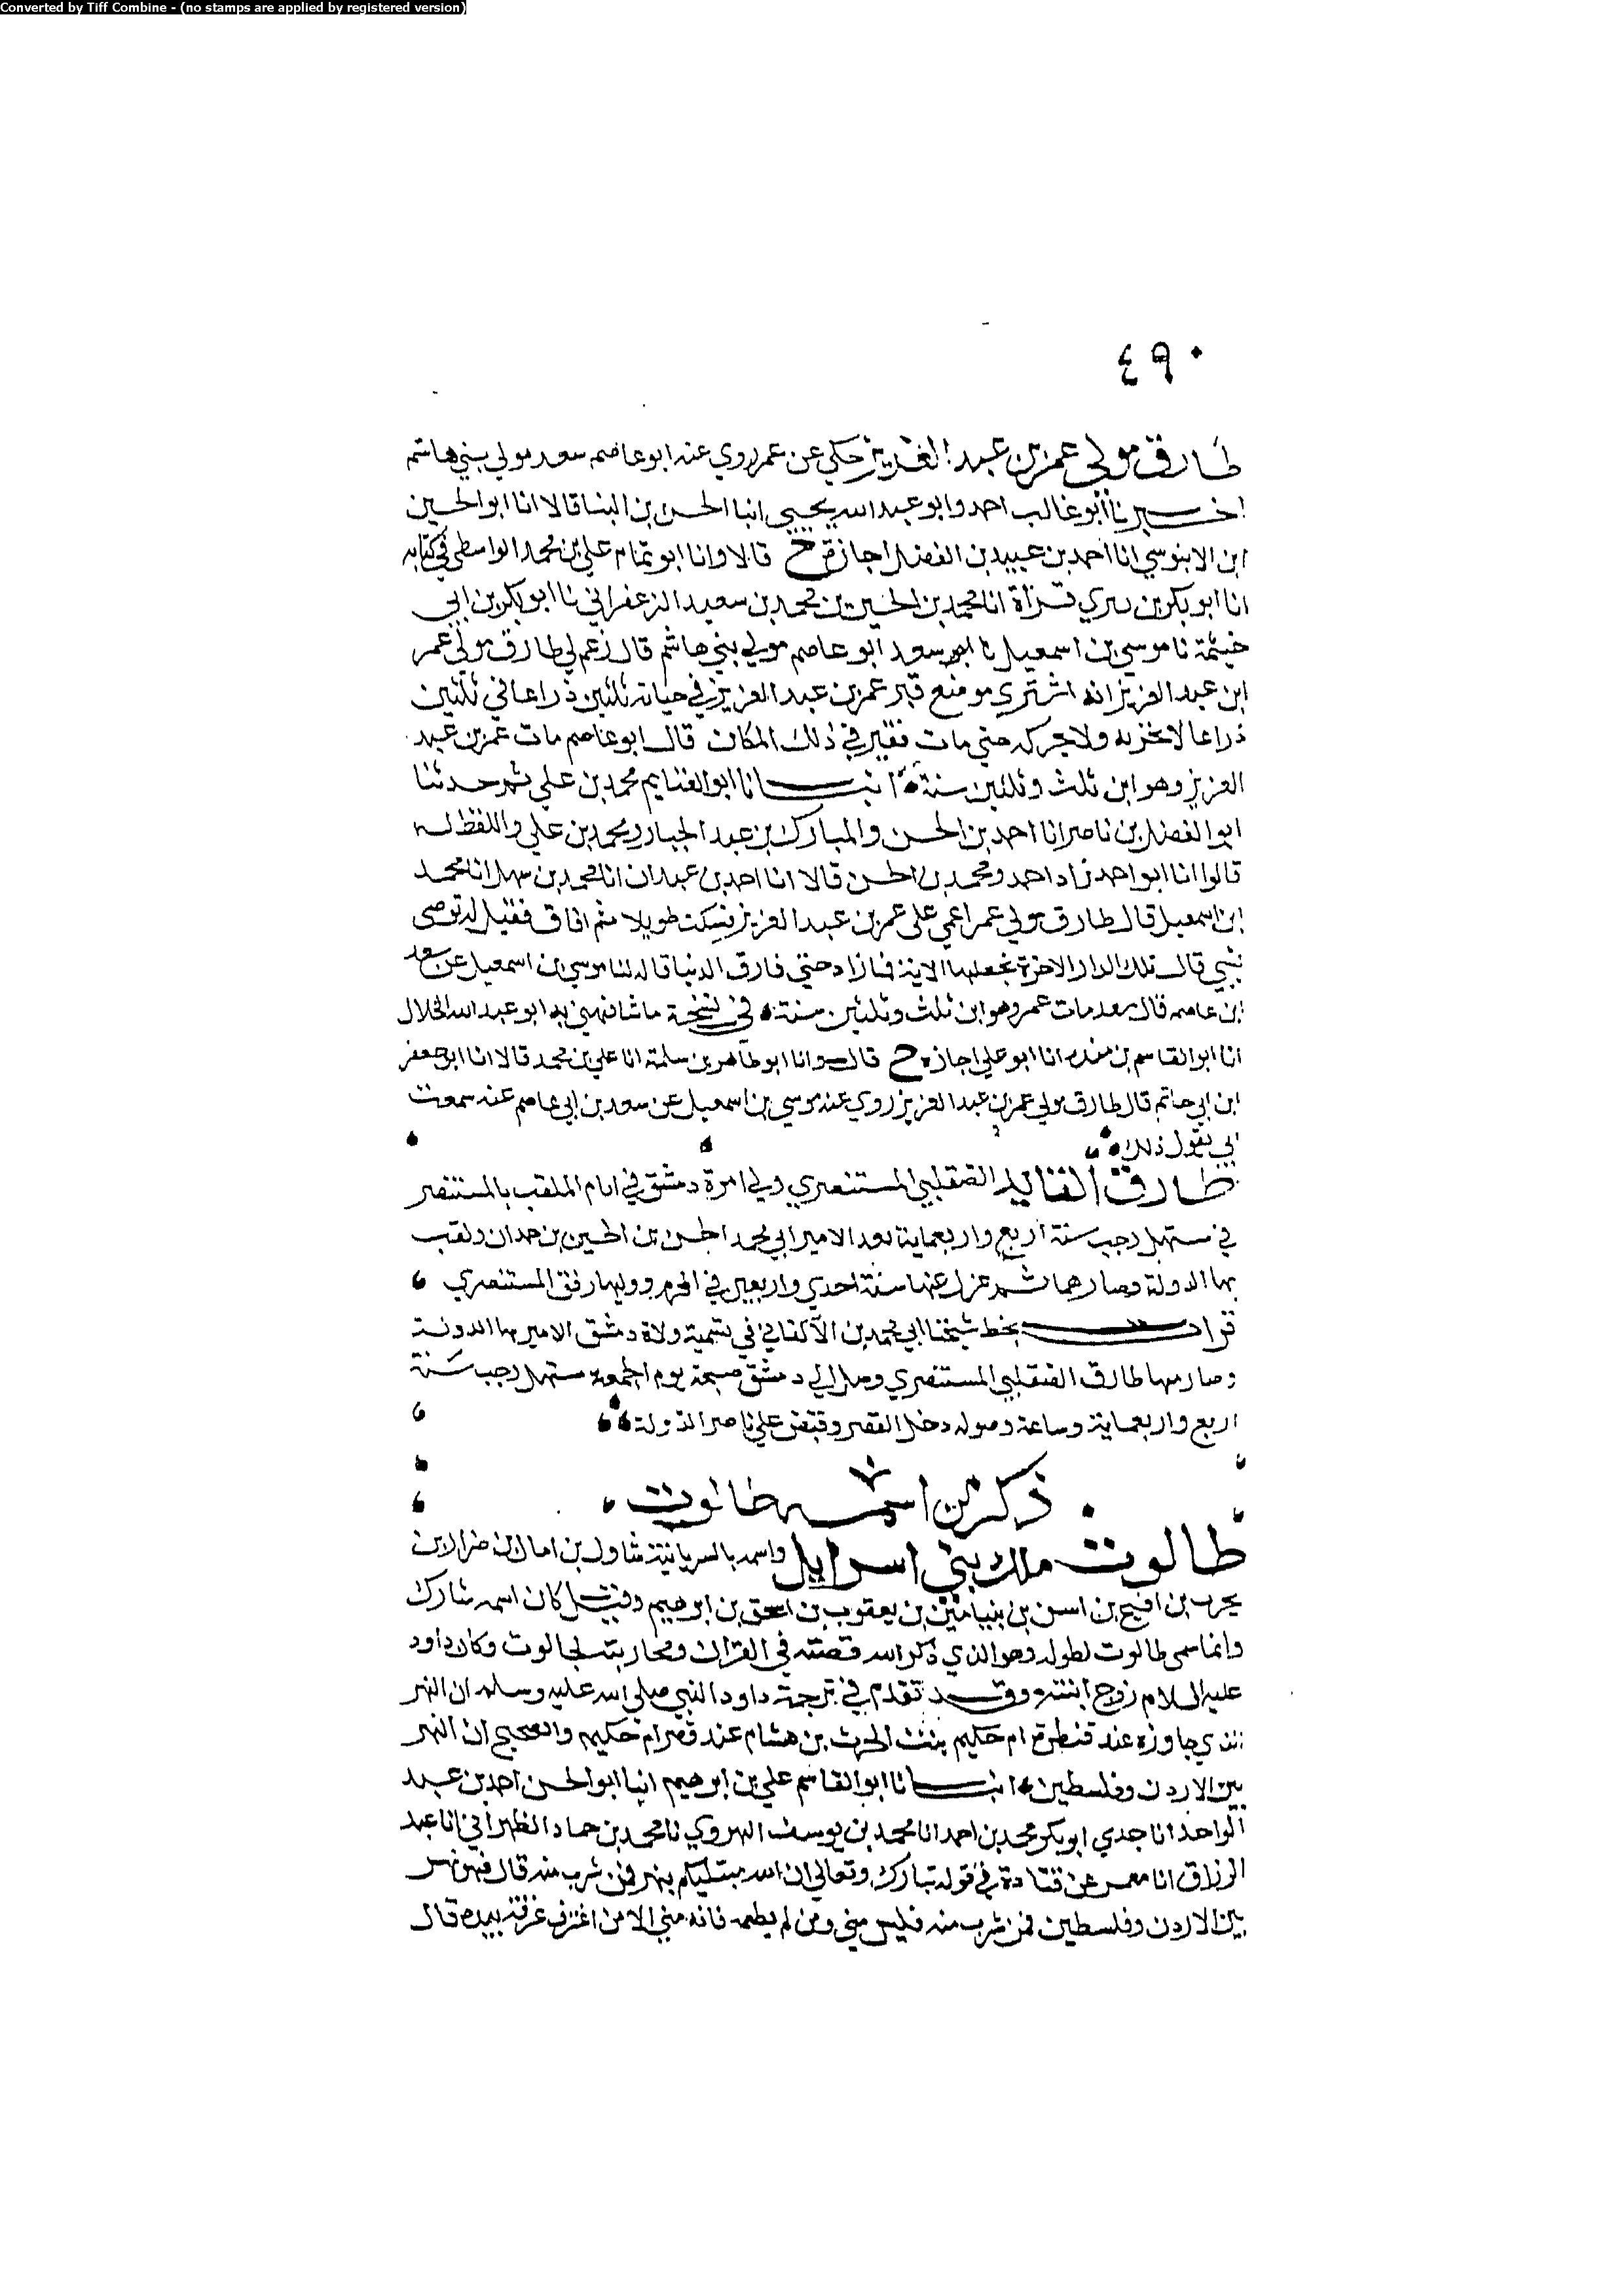 Converted by Tiff Combine - (no stamps are applied by registered version)
٤٩٠
طارق مولى عمر بن عبد العزيز حكي عن عمر روي عنه ابو عاصم سعد مولي بني هاشم
اخبرنا أبو غالب احمد وابو عبد الله يحيي انبا الحسن بن البنا قالا انا ابو الحسين
ابن الابنوسي انا احمد بن عبيد بن الفضل اجازة ح قالا وانا ابو تمام علي بن محمد الواسطي في كتابه
انا ابو بكر بن بيري قراة انا محمد بن الحسين بن محمد بن سعيد الزعفراني نا ابو بكر بن ابي
خيثمة نا موسي بن اسمعيل نا ابو سعد ابو عاصم مولي بني هاشم قال زعم لي طارق مولي عمر
ابن عبد العزيز انه اشتري موضع قبر عمر بن عبد العزيز في حياته ثلثين ذراعا في ثلثين
ذراعا لا نحزبه ولا حركه حتي مات فقبر في ذلك المكان قال ابو عاصم مات عمر بن عبد
العزيز وهو ابن ثلث وثلثين سنة انبانا ابو الغنايم محمد بن علي ثم حدثنا
ابو الفضل بن ناصر انا احمد بن الحسن والمبارك بن عبد الجبار ومحمد بن علي واللفظ له
قالوا انا ابو احمد زاد احمد ومحمد بن الحسن قالا انا احمد بن عبدان انا محمد بن سهل انا محمد
ابن اسمعيل قال طارق مولي عمر اغمي على عمر بن عبد العزيز فسكت طويلا ثم افاق فقيل له توصي
بشي قال تلك الدار الاخرة نجعلها الاية فما زاد حتي فارق الدنيا قاله لنا موسي بن اسمعيل عن سعد
ابن عاصم قال سعد مات عمر وهو ابن ثلث وثلثين سنة في نسخة ما شافهني به ابو عبد الله الخلال
انا ابو القاسم بن منده انا ابو علي اجازه ح قال وانا ابو طاهر بن سلمة انا علي بن محمد قالا انا ابو جعفر
ابن ابي حاتم قال طارق مولي عمر بن عبد العزيز روي عنه موسي بن اسمعيل عن سعد بن ابي عاصم عنه سمعت
ابي يقول ذلك
طارق القايد الصقلبي المستنصري ولي امرة دمشق في ايام الملقب بالمستنصر
في مستهل رجب سنة اربع واربعماية بعد الامير ابي محمد الحسن بن الحسين بن حمدان ولقب
بها الدولة وصارمها ثم عزل عنها سنة احدي واربعين في المحرم ووليها رفق المستنصري
قرات بخط شيخنا ابي محمد بن الاكفاني في تسمية ولاة دمشق الامير بها الدولة
وصارمها طارق الصقلبي المستنصري وصل الي دمشق صبيحة يوم الجمعة مستهل رجب سنة
اربع واربعماية وساعة وصوله دخل القصر وقبض علي ناصر الدولة
ذكر من اسمه طالوت
طالوت ملك بني اسرايل واسمه بالسريانية شاول بن امال بن ضرار بن
يحرب بن افيح بن اسن بن بنيامين بن يعقوب بن اسحق بن ابرهيم وقيل كان اسمه شارك
وانما سمى طالوت لطوله وهو الذي ذكر الله قصته في القران ومحاربته لجالوت وكان داود
عليه السلام زوج ابنته وقد تقدم في ترجمة داود النبي صلى الله عليه وسلم ان النهر
الذي جاوزه عند قنطرة ام حكيم بنت الحرث بن هشام عند قصر ام حكيم والصحيح ان النهر
بين الاردن وفلسطين انبانا ابو القاسم علي بن ابرهيم انبا ابو الحسن احمد بن عبد
الواحد انا جدي ابو بكر محمد بن احمد انا محمد بن يوسف الهروي نا محمد بن حماد الظهراني انا عبد
الرزاق انا معمر عن قتادة في قوله تبارك وتعالي ان الله مبتليكم بنهر فمن شرب منه قال فهو نهر
بين الاردن وفلسطين فمن شرب منه فليس مني ومن لم يطعمه فانه مني الا من اغترف غرفة بيده قال